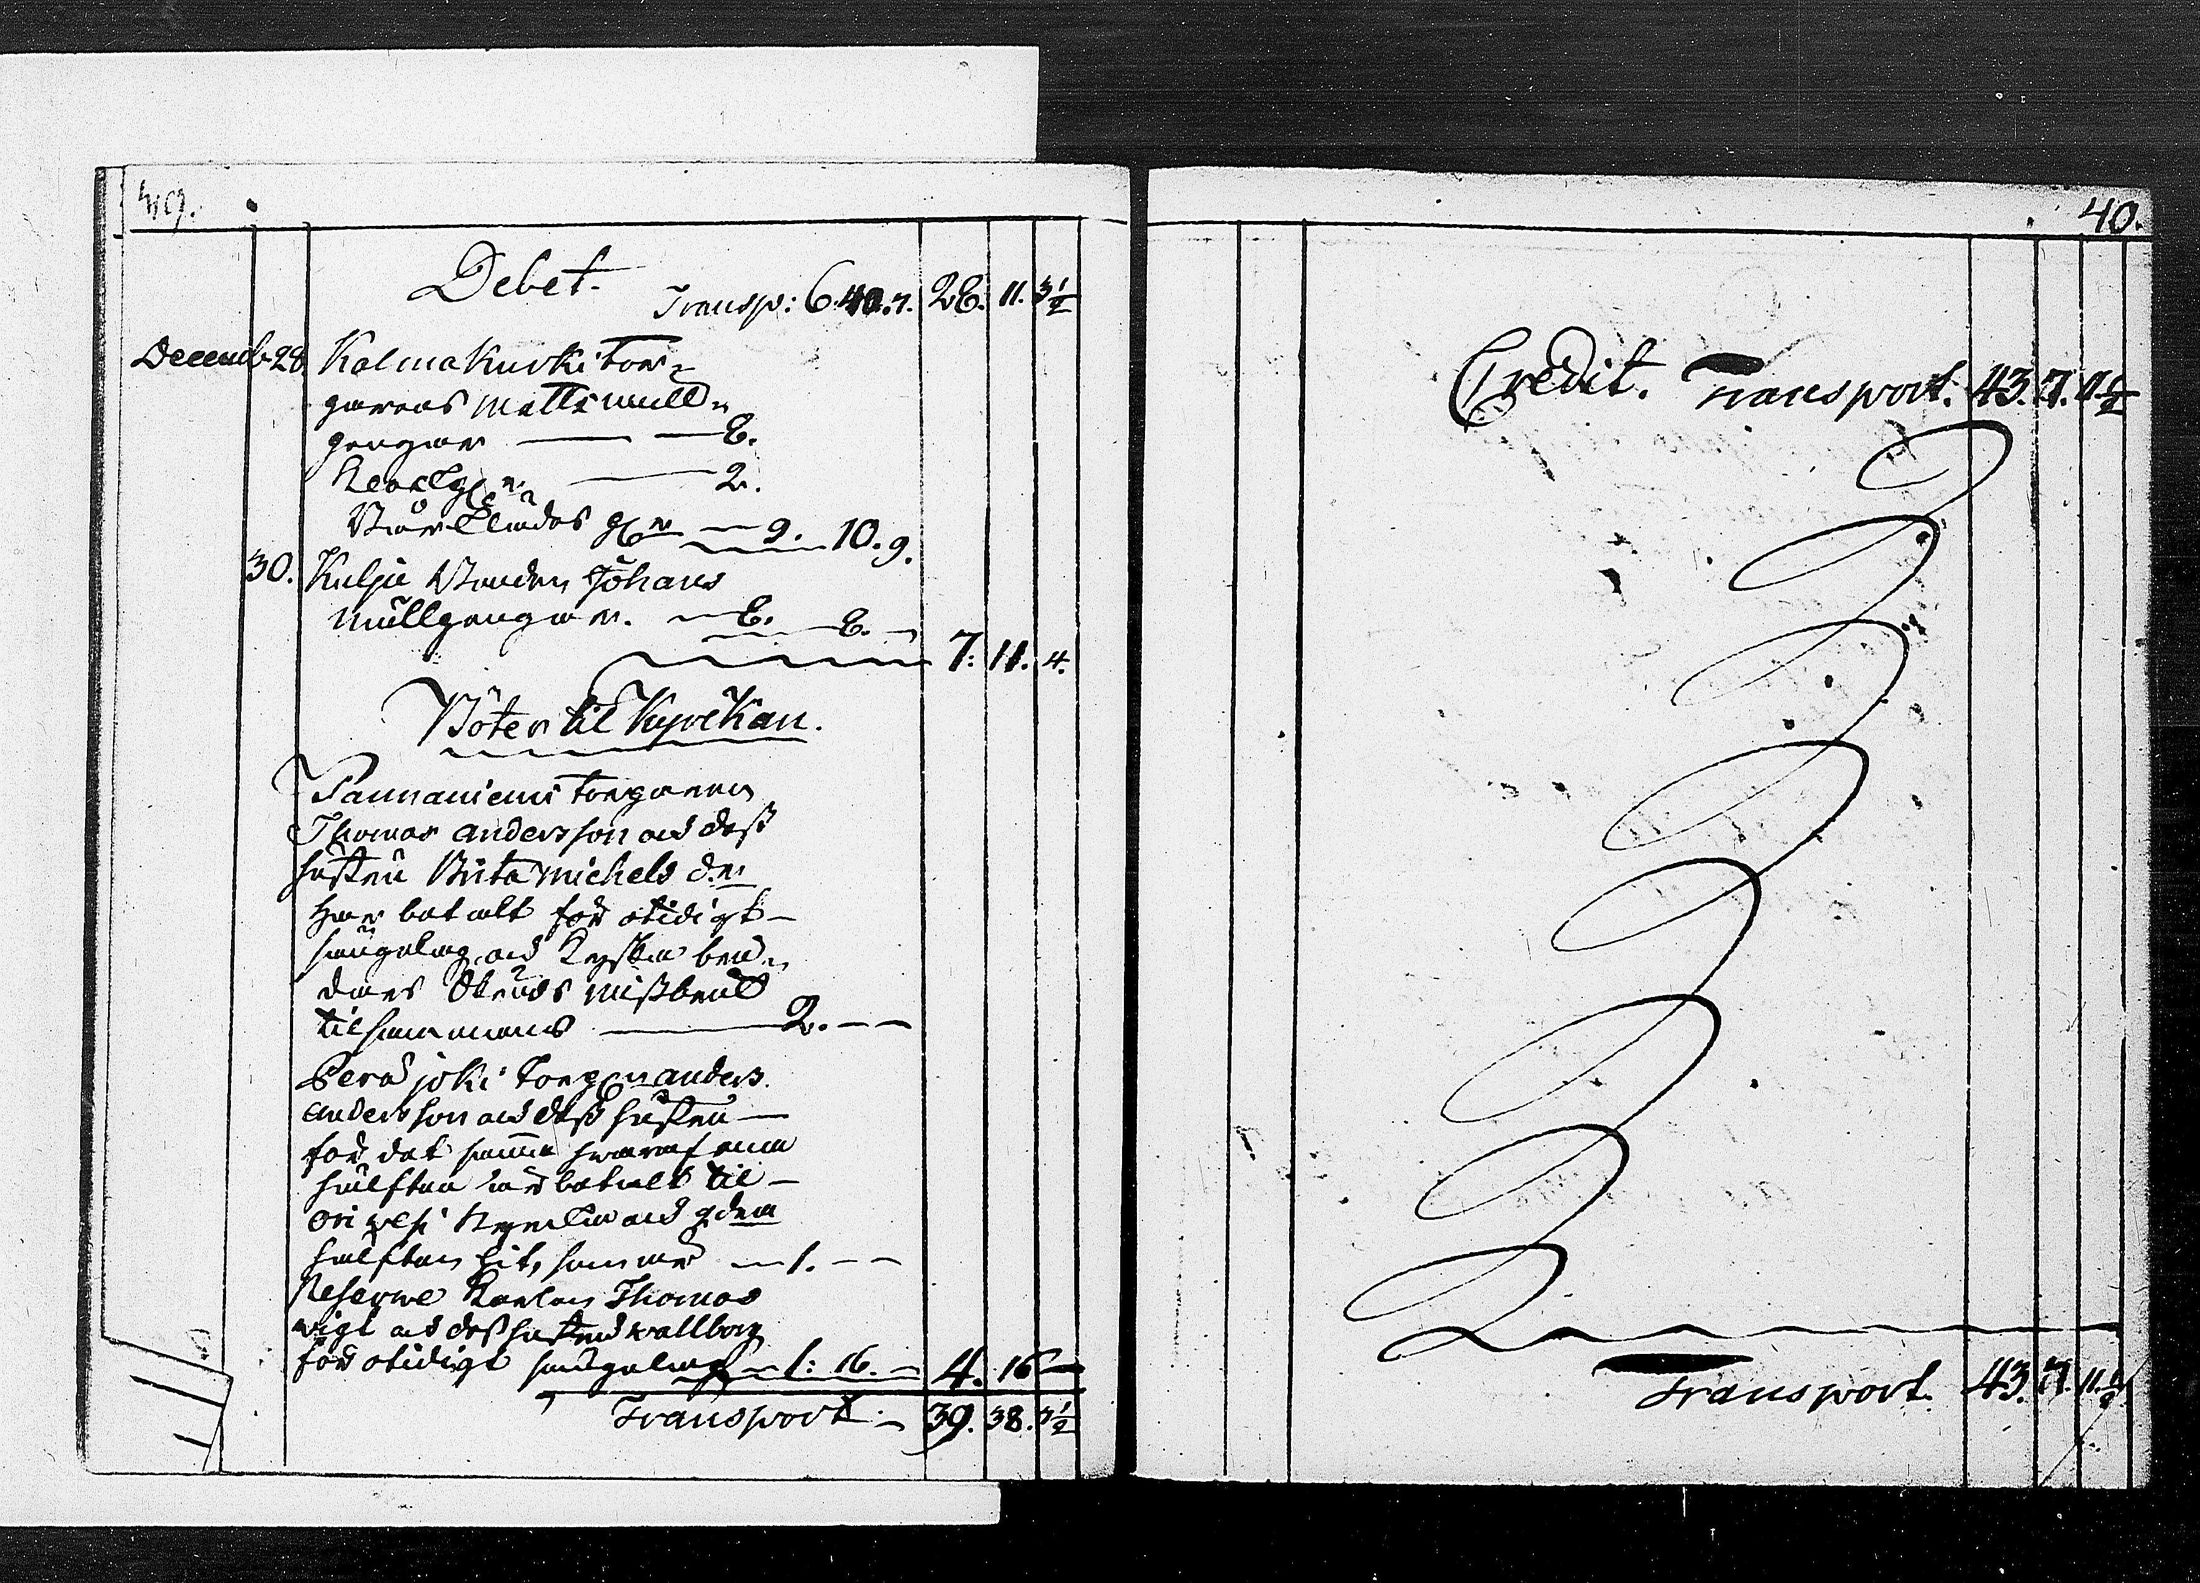 Debet.
Transp: 6.40.7. 28. 11. 3½
Decemb 28 Kalmakurki Tor¬
parens Matts mull¬
pengar — — 6.
Testg:n — 2.
Bårkläds g:n — 9. 10. 9.
30. Kulju Bonden Johans
mullpengar. — 6. 6. —
7. 11. 4.
Böter til Kyrkan.
Pannaniemi Torparen
Thomas Andersson och dess
hustru Brita Michels d:r
har betalt för otidigt
sängelag och Kyska bru¬
dars Skruds missbruk
tilsammans — 2. — —
Peräjoki Torp:n Anders
Andersson och dess hustru —
för det samma hwaraf ena
hälften är betalt til —
Oriwesi Kyrka och andra
hälften hit, summa — 1. — —
Reserve Karlen Thomas
Wigt och dess hustru Wallborg
för otidigt sängelag — 1: 16. — 4. 16 —
Transport. — 39. 38. 7½
40.
Credit. Transport. 43. 7. 11½
Transport. 43. 7. 11½